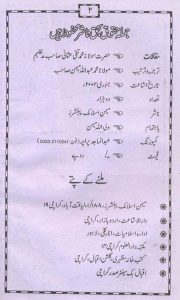 جملہ حقوق بحق ناشر محفوظ ہیں
مقالات حضرت مولانا محمد تقی عثمانی صاحب مدظلہم
ترجمہ و ترتیب مولانا محمد عبداللہ میمن صاحب
تاریخ اشاعت
تعداد دو ہزار
ناشر میمن اسلامک پبلشرز
باہتمام ولی اللہ میمن
کمپوزنگ عبدالماجد پراچہ (فون: 0333-2110941)
قیمت /= روپے
ملنے کے پتے
میمن اسلامک پبلشرز، ۱۸۸/۱، لیاقت آباد، کراچی ۱۹
دارالاشاعت، اردو بازار، کراچی
ادارہ اسلامیات، انارکلی، لاہور
مکتبہ دارالعلوم کراچی ۱۴
کتب خانہ مظہری، گلشن اقبال، کراچی
اقبال بک سینٹر صدر کراچی